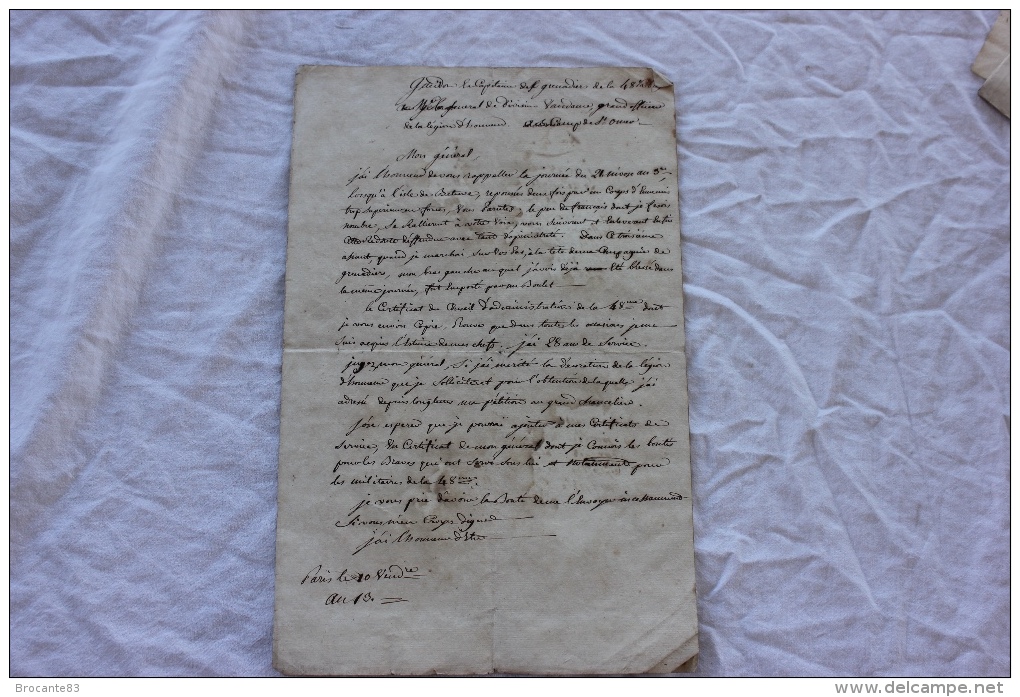 le Capitaine de grenadier de la 48me
general de Division Vandame, grand officier
de la légion d'honneur au Camp de St Omer
Mon général,
j'ai l'honneur de vous rappeller la journée du 21 nivose an 3me,
lorsqu'à l'isle de Betuve, repoussés deux fois par un Corps d'Ennemis
très Superieur en forces, Vous Parutes; le peu de français dont je fesois
nombre, Se Rallierent à votre Voix, vous Suivirent et Enleverent
cette Redoute deffendue avec tant d'opiniatreté. Dans Ce troisieme
assaut, quand je marchai Sur Vos Pas, à la tete de ma Compagnie de
grenadier, mon bras gauche au quel j'avois déjà été blessé dans
la meme journée, fut Emporté par un Boulet
le Certificat du Conseil d'administration de la 48me dont
je vous envoie Copie, Prouve que dans toutes les occasions je me
suis acquis l'Estime de mes chefs. j'ai 28 ans de Service.
jugez, mon général, Si j'ai mérité la décoration de la légion
d'honneur que je Sollicite et pour l'obtention de laquelle j'ai
adressé depuis longtems une pétition au grand chancelier.
j'ose esperer que je pourrai ajouter à mes Certificats de
Service, Un Certificat de mon général dont je Connois les bontés
pour les Braves qui ont Servi Sous lui et Notamment pour
les militaires de la 48me.
je vous prie d'avoir la Bonté de me l'Envoyer
Si vous m'en Croyez digne
j'ai l'honneur d'Etre
Paris le 10 Vendre
an 13.
Brocante83
www.delcampe.net